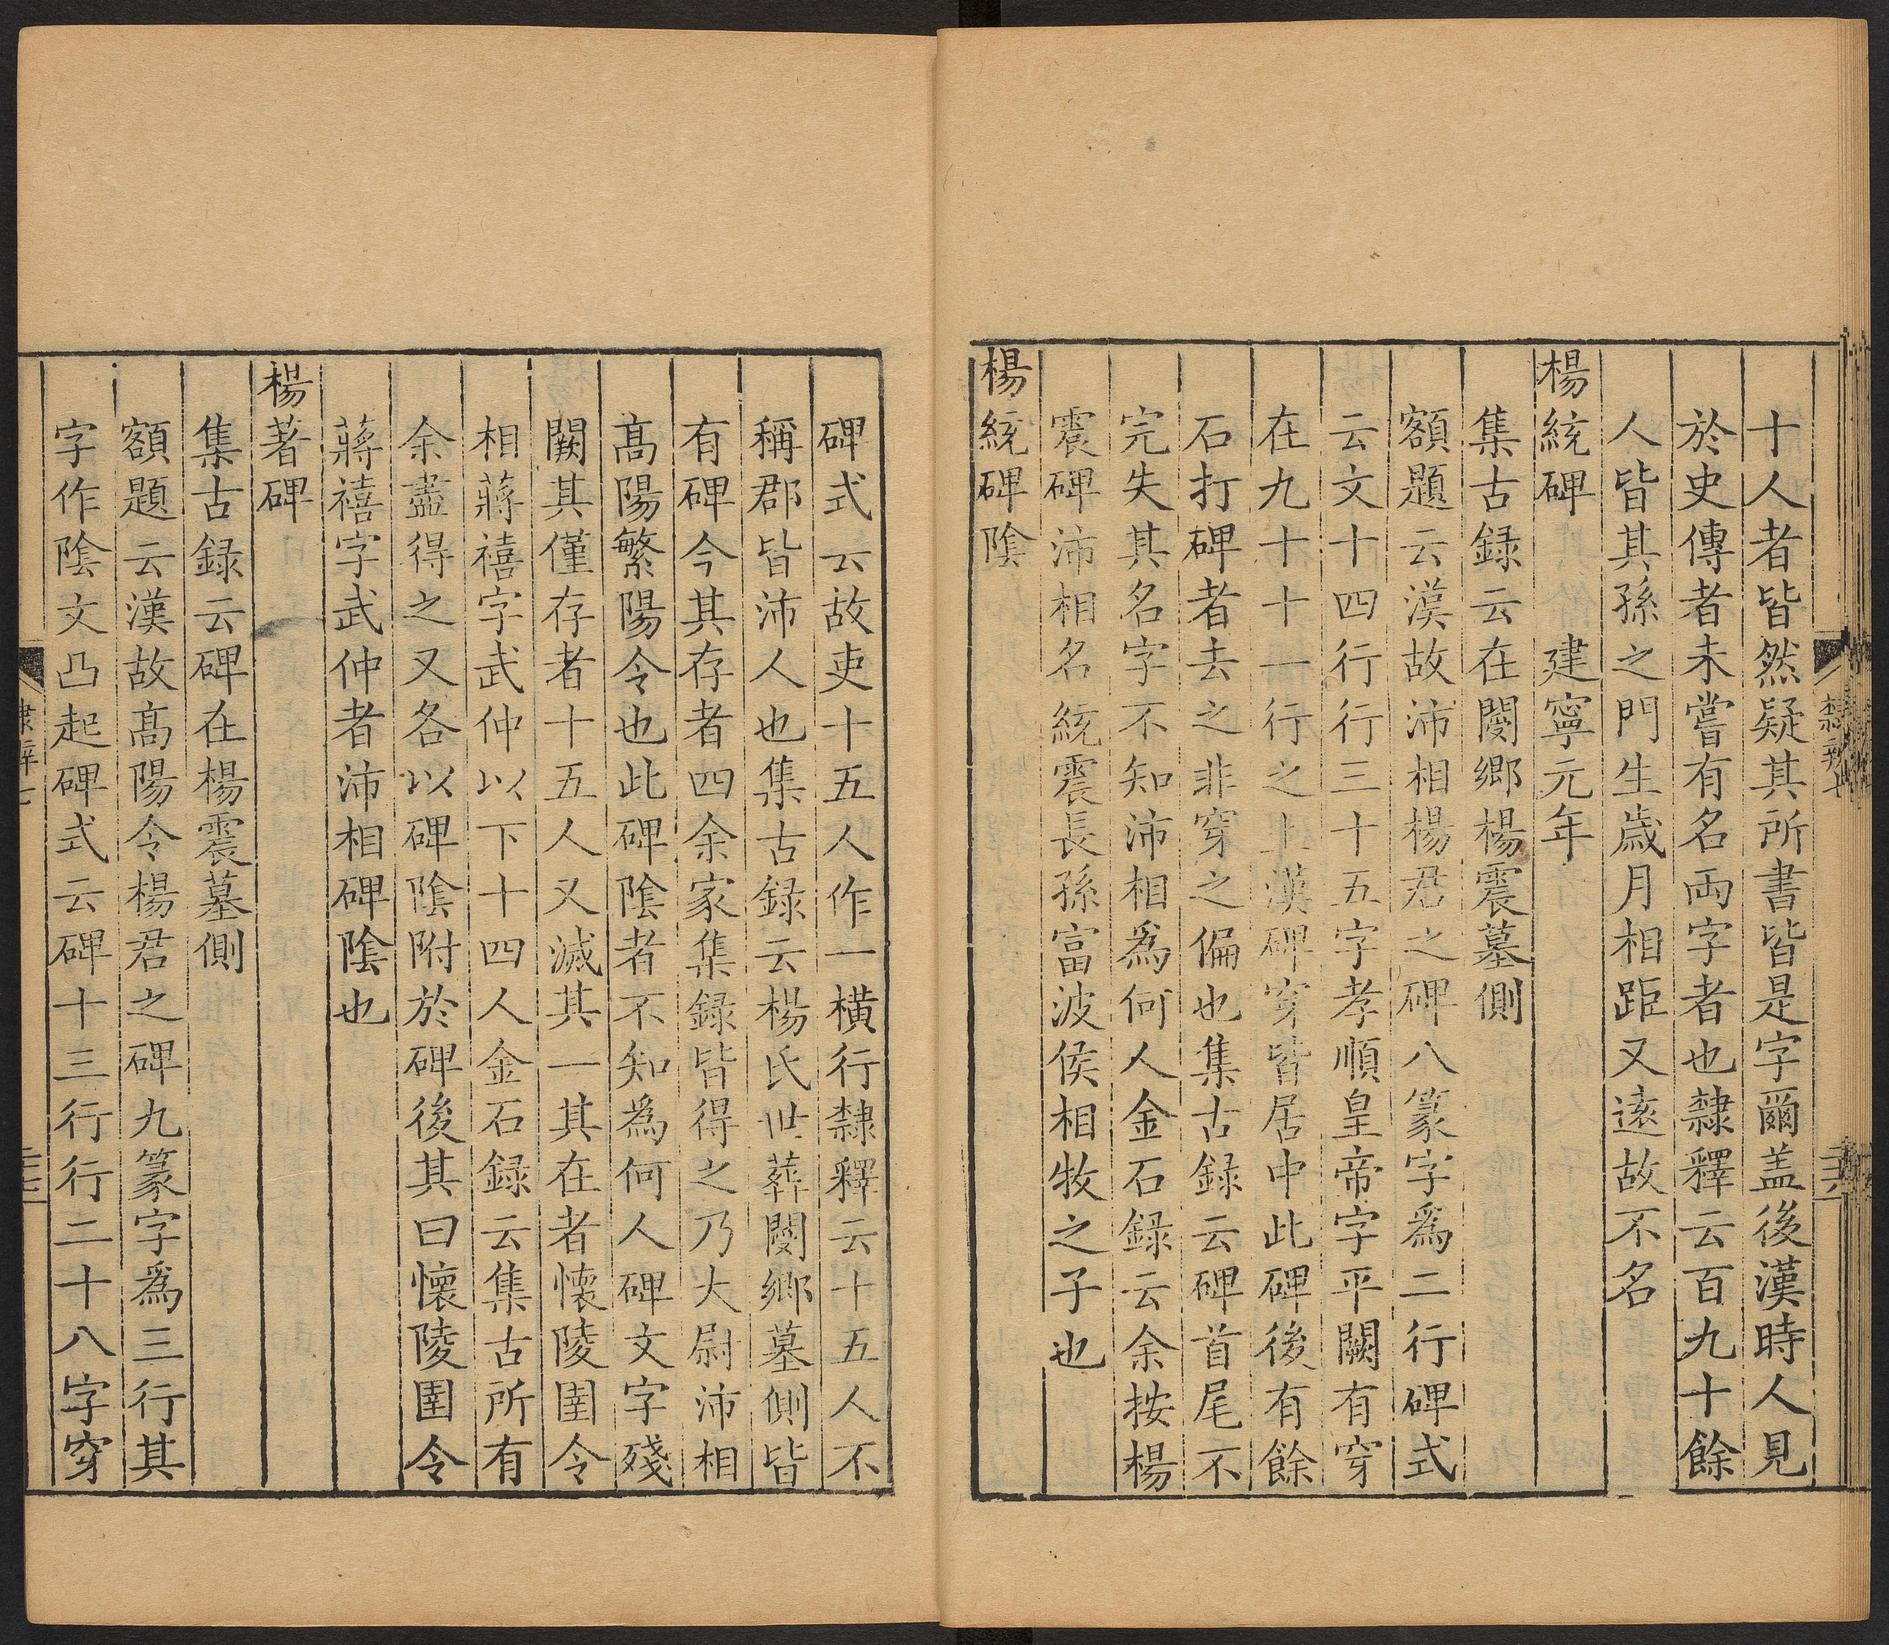 十人者皆然疑其所書皆是字爾盖後漢時人見
於史傳者未嘗有名両字者也隸釋云百九十餘
人皆其孫之門生歲月相距又遠故不名
楊統碑　建寧元年
集古録云在閿鄉楊震墓側
額題云漢故沛相楊君之碑八篆字爲二行碑式
云文十四行行三十五字孝順皇帝字平闕有穿
在九十十一行之上漢碑穿皆居中此碑後有餘
石打碑者去之非穿之偏也集古録云碑首尾不
完失其名字不知沛相爲何人金石録云余按楊
震碑沛相名統震長孫富波侯相牧之子也
楊統碑隂
碑式云故吏十五人作一横行隸釋云十五人不
稱郡皆沛人也集古録云楊氏世葬閿鄉墓側皆
有碑今其存者四余家集録皆得之乃大尉沛相
髙陽繁陽令也此碑隂者不知爲何人碑文字殘
闕其僅存者十五人又滅其一其在者懷陵圉令
相蔣禧字武仲以下十四人金石録云集古所有
余盡得之又各以碑隂附於碑後其曰懷陵圉令
蔣禧字武仲者沛相碑隂也
楊著碑
集古録云碑在楊震墓側
額題云漢故髙陽令楊君之碑九篆字爲三行其
字作隂文凸起碑式云碑十三行行二十八字穿